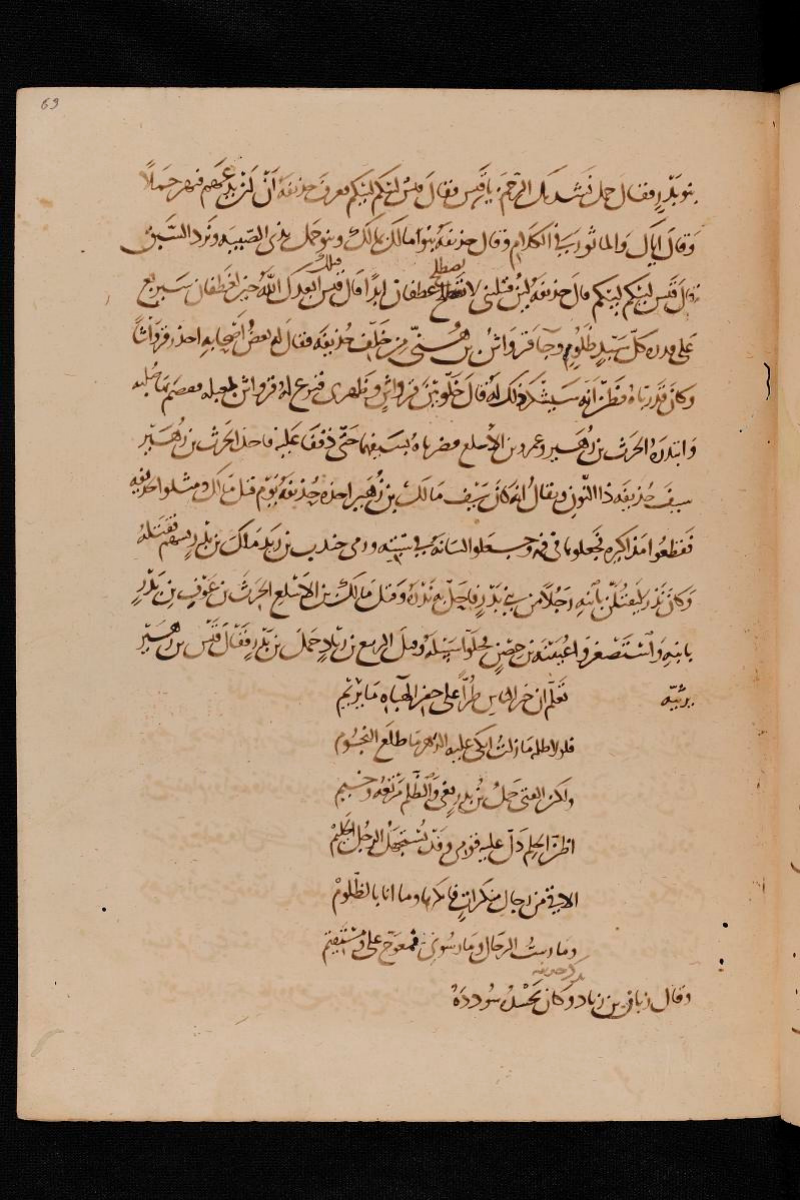 69
بنو بدر فقال حمل نشدتك الرحم يا قيس فقال قيس لبيكم لبيكم فعرف حذيفة أن لن يدعهم فنهر حملا
وقال اياك والماثور في الكلام وقال حذيفة بنو مالك بمالك وبنو حمل بذي الصبية ونرد السبق
قال قيس لبيكم لبيكم قال حذيفة لئن قتلتني لا تصطلح غطفان ابدا قال قيس ابعدك الله قتلك خير لغطفان سيربع
على قدره كل سيد ظلوم وجآ قرواش بن هني من خلف حذيفة فقال له بعض اصحابه احذر قرواشا
وكان قد رباه فظن انه سيشكر ذلك له قال خلوا بين قرواش وظهري فنزع له قرواش بمعبلة فقصم بها صلبه
وابتدره الحرث بن زهير وعمرو بن الاسلع فضرباه بسيفيهما حتى ذففا عليه فاخذ الحرث بن زهير
سيف حذيفة ذا النون ويقال انه كان سيف مالك بن زهير اخذه حذيفة يوم قتل مالك ومثلوا بحذيفة
فقطعوا مذاكيره فجعلوها في فيه وجعلوا لسانه في استه ورمى جندب بن زيد مالك بن بدر بسهم فقتله
وكان نذر ليقتلن بابنه رجلا من بني بدر فاحل به نذره وقتل مالك بن الاسلع الحرث بن عوف بن بدر
بابنه واستصغروا عيينة بن حصن فخلوا سبيله وقتل الربيع بن زياد حمل بن بدر فقال قيس بن زهير
يرثيه
تعلم ان خير الناس طرا على جفر الهباه ما يريم
فلولا ظلمه ما زلت ابكي عليه الدهر ما طلع النجوم
ولكن الفتى حمل بن بدر بغى والظلم مرتعه وخيم
اظن الحلم دل عليه قومي وقد يستجهل الرجل الحليم
الاقي من رجال منكرات فانكرها وما انا بالظلوم
ومارست الرجال ومارسوني فمعوج علي ومستقيم
وقال زبان بن زياد يذكر حذيفة وكان يحسد سودده